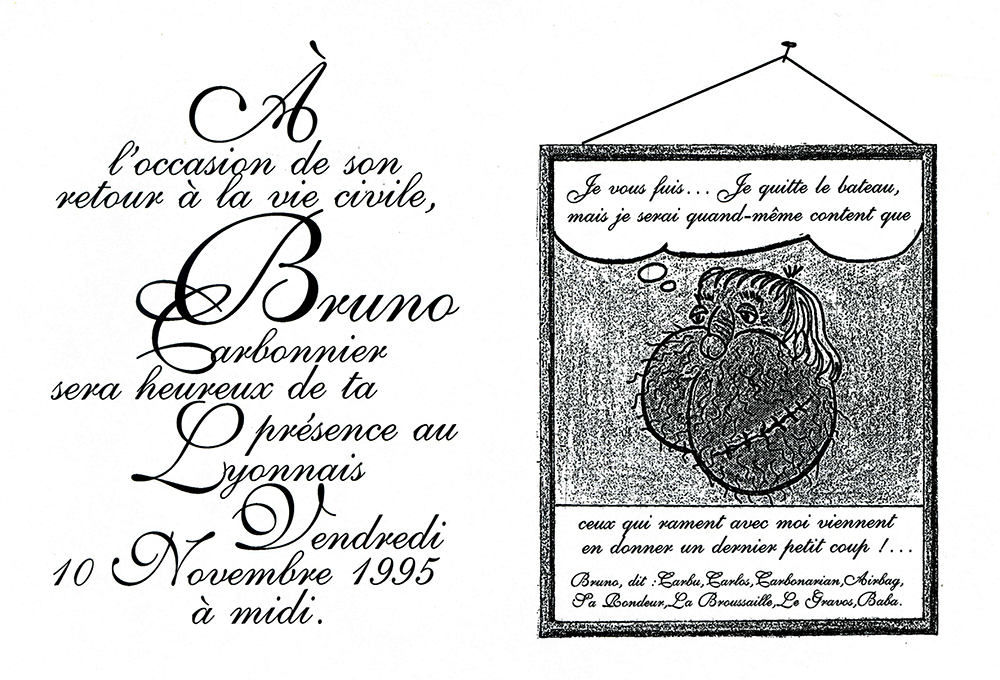 À
l'occasion de son
retour à la vie civile,
Bruno
Carbonnier
sera heureux de ta
présence au
Lyonnais
Vendredi
10 Novembre 1995
à midi.
Je vous fuis... Je quitte le bateau,
mais je serai quand-même content que
ceux qui rament avec moi viennent
en donner un dernier petit coup !...
Bruno, dit : Carbu, Carlos, Carbonarian, Airbag,
Sa Rondeur, La Broussaille, Le Gravos, Baba.